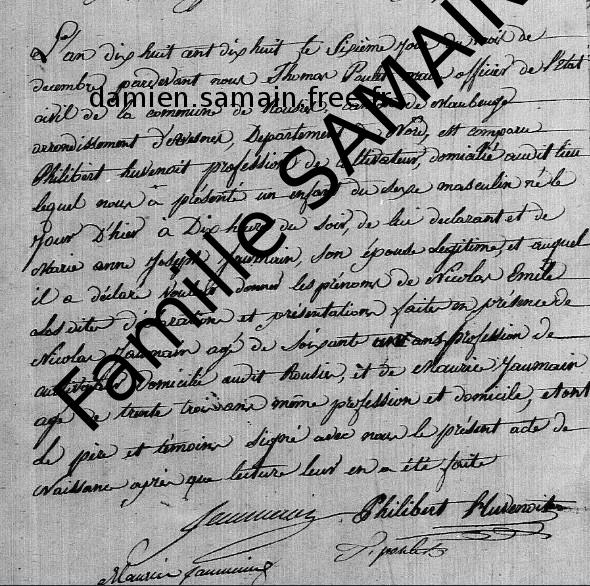 L'an dix huit cent dix huit le Sixième jour du mois de
decembre pardevant nous Thomas officier de l'état
civil de la commune de Rousies de Maubeuge
arrondissement d'avesnes, Département Nord, est comparu
Philibert huvenoit profession de cultivateur, domicilié audit lieu
lequel nous à présenté un enfant du sexe masculin né le
jour D'hier à Dix heures du soir, de lui declarant et de
Marie anne Joseph Jaumain, son épouse Legitime, et auquel
il a déclaré vouloir donner les prénoms de Nicolas Emile
Lesdites déclaration et présentation faites en présence de
Nicolas Jaumain agé de soixante ans profession de
domicilié audit Rousies, et de Maurice Jaumain
agé de trente trois ans même profession et domicile, et ont
Le père et témoins signé avec nous le présent acte de
Naissance après que lecture leur en a été faite
Jaumain Philibert Huvenoit
Maurice Jaumain
damien.samain.free.fr
Famille SAMAIN